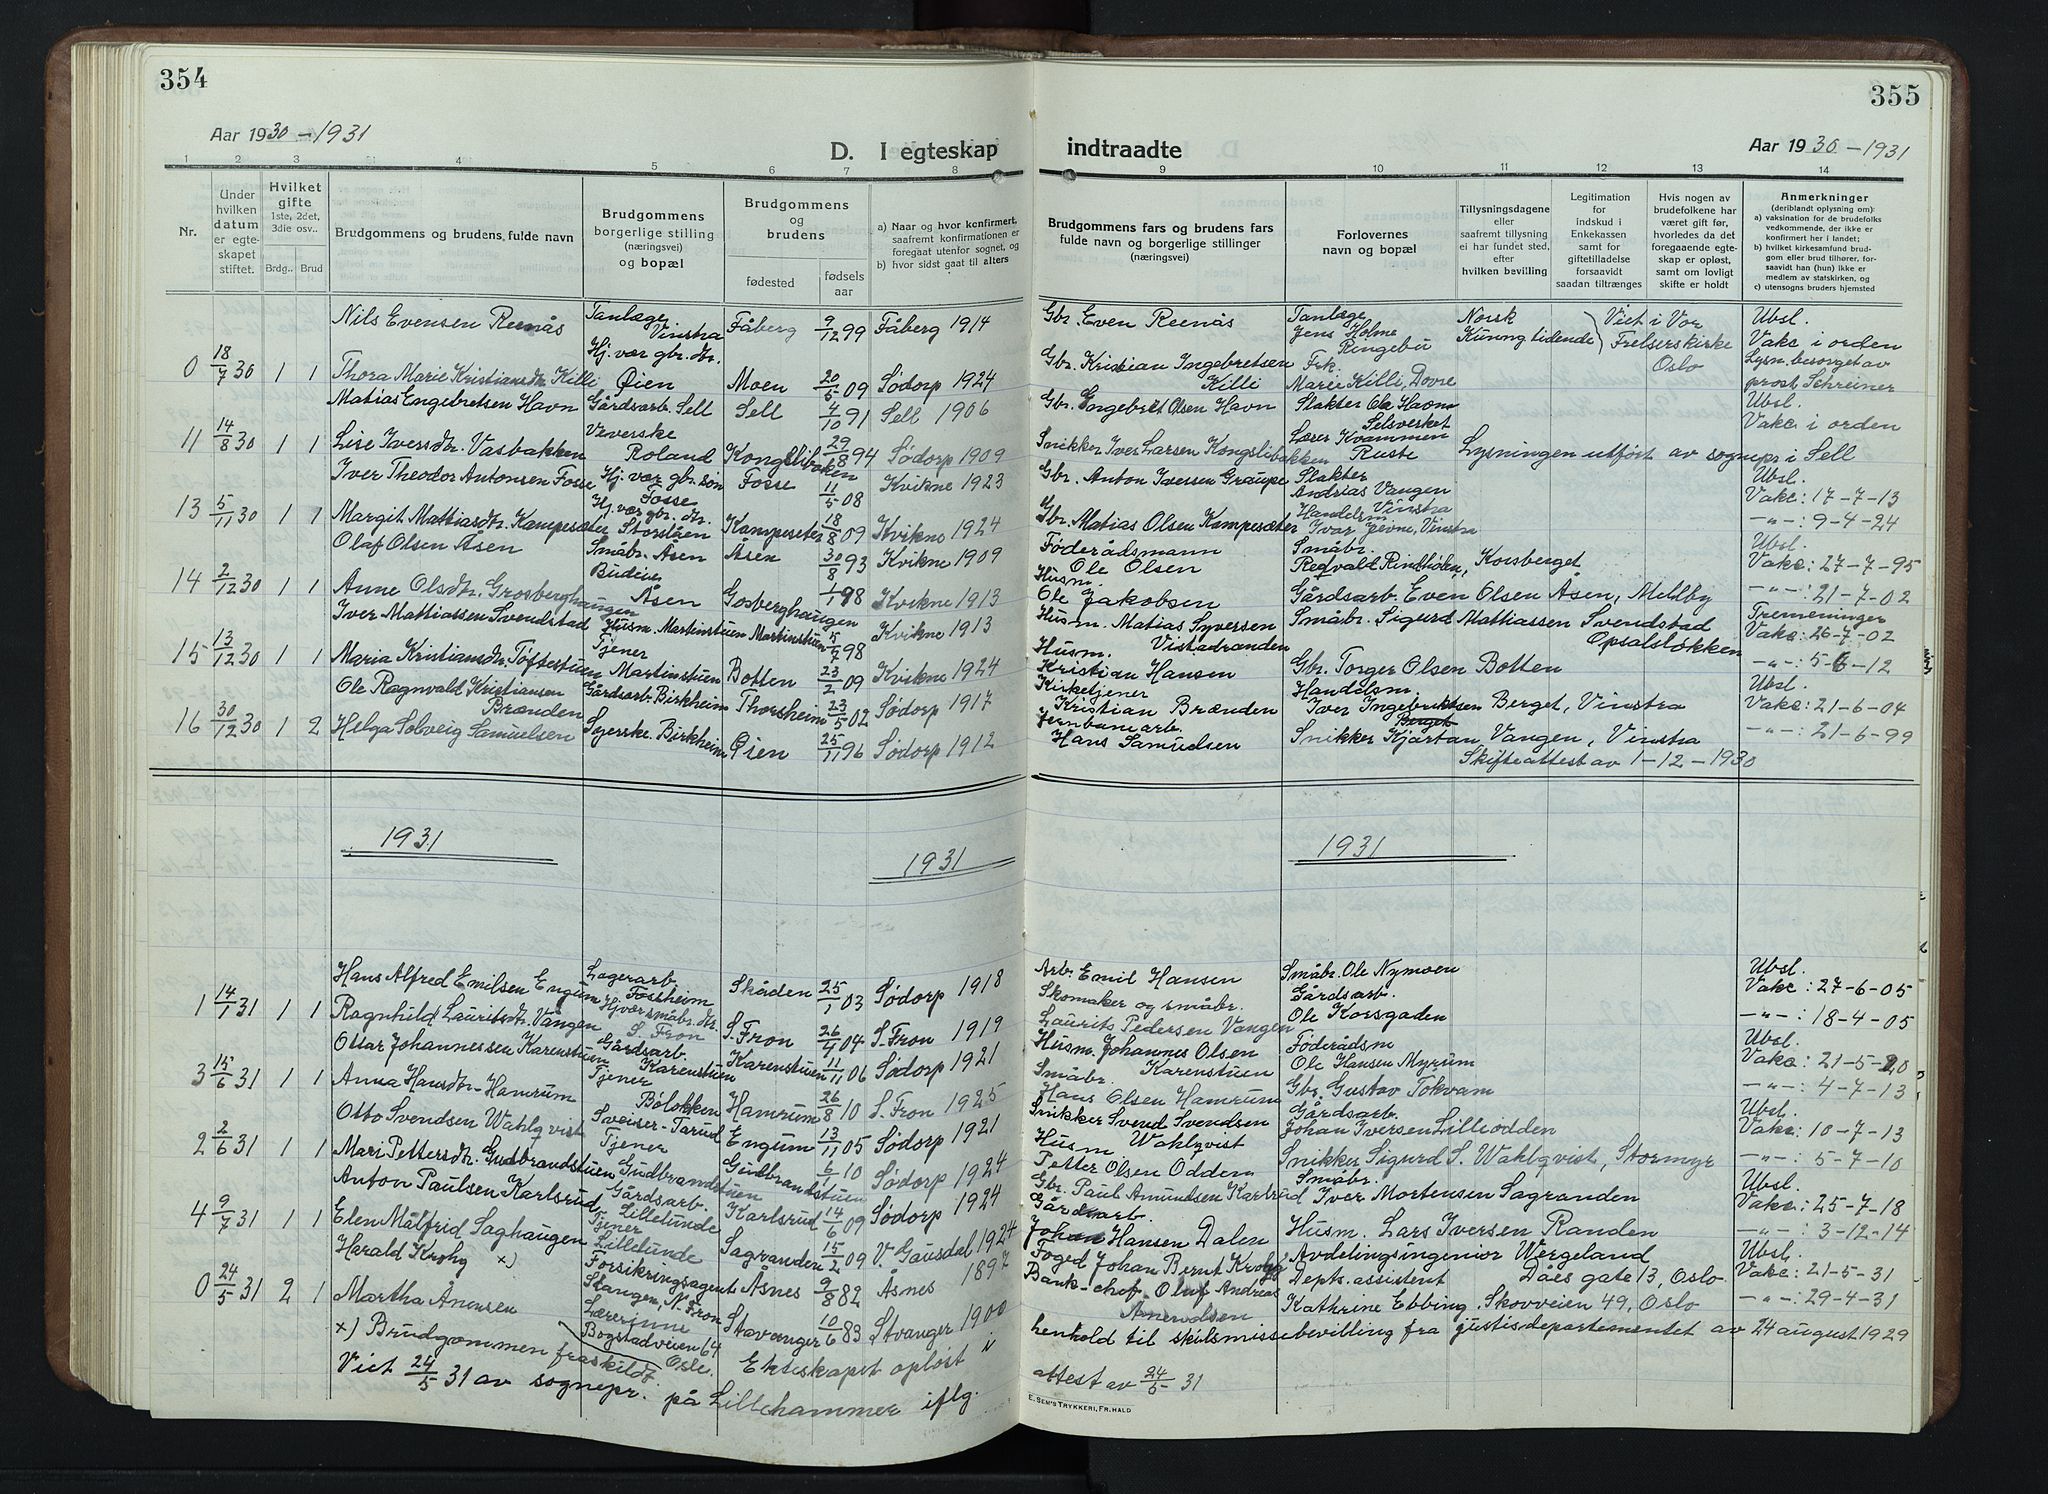 354
Aar 1930–1931
D. I egteskap
1 2 3 4 5 6 7 8
Nr.
Under hvilken datum er egteskapet stiftet.
Hvilket gifte 1ste, 2det, 3die osv..
Brdg.. Brud
Brudgommens og brudens, fulde navn
Brudgommens borgerlige stilling (næringsvei) og bopæl
Brudgommens og brudens
fødested
fødsels aar
a) Naar og hvor konfirmert, saafremt konfirmationen er foregaat utenfor sognet, og
b) hvor sidst gaat til alters
Nils Evensen Reenås Tanlæge Vinstra Fåberg 9/12 99 Fåberg 1914
0 18/7 30 1 1 Thora Marie Kristiansdtr. Killi Hj. vær. gbr. dtr. Øien Moen 20/5 09 Sødorp 1924
Matias Engebretsen Havn Gårdsarb. Sell Sell 4/10 91 Sell 1906
11 14/8 30 1 1 Lise Iversdtr. Vasbakken Veverske Roland Kongslibakken 29/8 94 Sødorp 1909
Iver Theodor Antonsen Fosse Hj. vær gbr. søn Fosse Fosse 11/5 08 Kvikne 1923
13 5/11 30 1 1 Margit Mattiasdtr. Kampesæter Hj. vær gbr. dtr. Storslåen Kampeseter 18/8 09 Kvikne 1924
Olaf Olsen Åsen Småbr. Åsen Åsen 30/8 93 Kvikne 1909
14 2/12 30 1 1 Anne Olsdtr. Grosberghaugen Budeie Åsen Gosberghaugen 1/1 98 Kvikne 1913
Iver Mattiassen Svendstad Husm. Martinstuen Martinstuen 5/7 98 Kvikne 1913
15 13/12 30 1 1 Maria Kristiansdtr. Tofterstuen Tjener Martinstuen Botten 23/2 09 Kvikne 1924
Ole Ragnvald Kristiansen Brænden Gårdsarb. Birkheim Thorsheim 23/5 02 Sødorp 1917
16 30/12 30 1 2 Helga Solveig Samuelsen Syerske. Birkheim Øien 25/11 96 Sødorp 1912
1931
1931
Hans Alfred Emilsen Engum Lagerarb. Fossheim Skåden 25/1 03 Sødorp 1918
1 14/1 31 1 1 Ragnhild Lauritsdtr. Vangen Hj. vær småbr. dtr. S. Fron S. Fron 26/4 04 S. Fron 1919
Ottar Johannessen Karenstuen Gårdsarb. Karenstuen Karenstuen 11/11 06 Sødorp 1921
3 15/6 31 1 1 Anna Hansdtr. Hamrum Tjener Bøløkken Hamrum 26/8 10 S. Fron 1925
Otto Svendsen Wahlqvist Sveiser - Tarud Engum 13/11 05 Sødorp 1921
2 2/6 31 1 1 Mari Pettersdtr. Gudbrandstuen Tjener Gudbrandstuen Gudbrandstuen 6/1 10 Sødorp 1924
Anton Paulsen Karlsrud Gårdsarb. Lillelunde Karlsrud 14/6 09 Sødorp 1924
4 9/7 31 1 1 Elen Målfrid Saghaugen Tjener Lillelunde Sagranden 15/2 09 V. Gausdal 1924
Harald Krohg x) Forsikringsagent Skangen, N. Fron Åsnes 9/8 82 Åsnes 1897
0 24/5 31 2 1 Martha Anensen Lærerinne Bogstadveien 64 Oslo. Stavanger 10/6 83 Stvanger 1900
x) Brudgommen fraskildt Ekteskapet opløst i
Viet 24/5 31 av sognepr. på Lillehammer iflg.
355
indtraadte
Aar 1930–1931
9 10 11 12 13 14
Brudgommens fars og brudens fars fulde navn og borgerlige stillinger (næringsvei)
Forlovernes navn og bopæl
Tillysningsdagene eller saafremt tillysning ei har fundet sted, efter hvilken bevilling
Legitimation for indskud i Enkekassen samt for giftetilladelse forsaavidt saadan tiltrænges
Hvis nogen av brudefolkene har været gift før, hvorledes da det foregaaende egteskap er opløst, samt om lovligt skifte er holdt
Anmerkninger (deriblandt oplysning om):
a) vaksination for de brudefolks vedkommende, der ikke er konfirmert her i landet;
b) hvilket kirkesamfund brudgom eller brud tilhører, forsaavidt han (hun) ikke er medlem av statskirken, og
c) utensogns bruders hjemsted
Gbr. Even Reenås Tanlæge Jens Holme Ringebu Norsk Kunngtidende Viet i Vor Frelserskirke Oslo Ubsl. Vakc i orden
Gbr. Kristian Ingebretsen Killi Frk. Marie Killi, Dovre Lysn. besørget av prost Schreiner
Gbr. Engebret Olsen Havn Slakter Ole Haom Selsverket Ubsl. Vakc. i orden
Snikker Iver Larsen Kongslibakken Lærer Kvammen Ruste Lysningen utført av sognepr. i Sell
Gbr. Anton Iversen Graupe Slakter Andrias Vangen Vinstra Ubsl. Vakc: 17-7-13
Gbr. Matias Olsen Kampesæter Handelsm. Ivar Jevne, Vinstra -"-: 9-4-24
Føderådsmann Ole Olsen Småbr. Regvald Rindliølen, Korsberget Ubsl. Vakc: 27-7-95
Husm. Ole Jakobsen Gårdsarb. Even Olsen Åsen, Mellby -"-: 21-7-02
Husm. Matias Syversen Vistadrænden Småbr. Sigurd Mattiassen Svendstad Opsalsløkken Tremeninger Vakc: 26-7-02
Husm. Kristian Hansen Gbr. Torger Olsen Botten -"-: 5-6-12
Kirketjener Kristian Brænden Handelsm. Iver Ingebrektsen Berget, Vinstra Ubsl. Vakc: 21-6-04
Jernbanearb. Hans Samuelsen Snikker Kjartan Vangen, Vinstra -"-: 21-6-99
Skifteattest av 1-12-1930
1931
Arb. Emil Hansen Småbr. Ole Nymoen Ubsl. Vakc: 27-6-05
Skomaker og småbr. Laurits Pedersen Vangen Gårdsarb. Ole Korsgaden -"-: 18-4-05
Husm. Johannes Olsen Karenstuen Føderådsm Ole Hansen Myrum Ubsl. Vakc: 21-5-20
Småbr. Hans Olsen Hamrum Gbr. Gustav Tokvam -"-: 4-7-13
Snikker Svend Svendsen Wahlqvist Gårdsarb. Johan Iversen Lilleodden Ubsl. Vakc: 10-7-13
Husm Petter Olsen Odden Snikker Sigurd S. Wahlqvist, Stormyr -"-: 5-7-10
Gbr. Paul Amundsen Karlsrud Småbr. Iver Mortensen Sagranden Ubsl. Vakc: 25-7-18
Gårdsarb. Johan Hansen Dalen Husm. Lars Iversen Randen -"-: 3-12-14
Foged Johan Bernt Krohg Avdelingsingeniør Wergeland Dåes gate 13, Oslo Ubsl. Vakc: 21-5-31
Bank-chef Oluf Andreas Anensen Depts. assistent Kathrine Ebbing. Skovveien 49, Oslo -"-: 29-4-31
henhold til skilsmissebevilling fra justisdepartementet av 24 august 1929
attest av 24/5 31
E. SEM'S TRYKKERI, FR. HALD